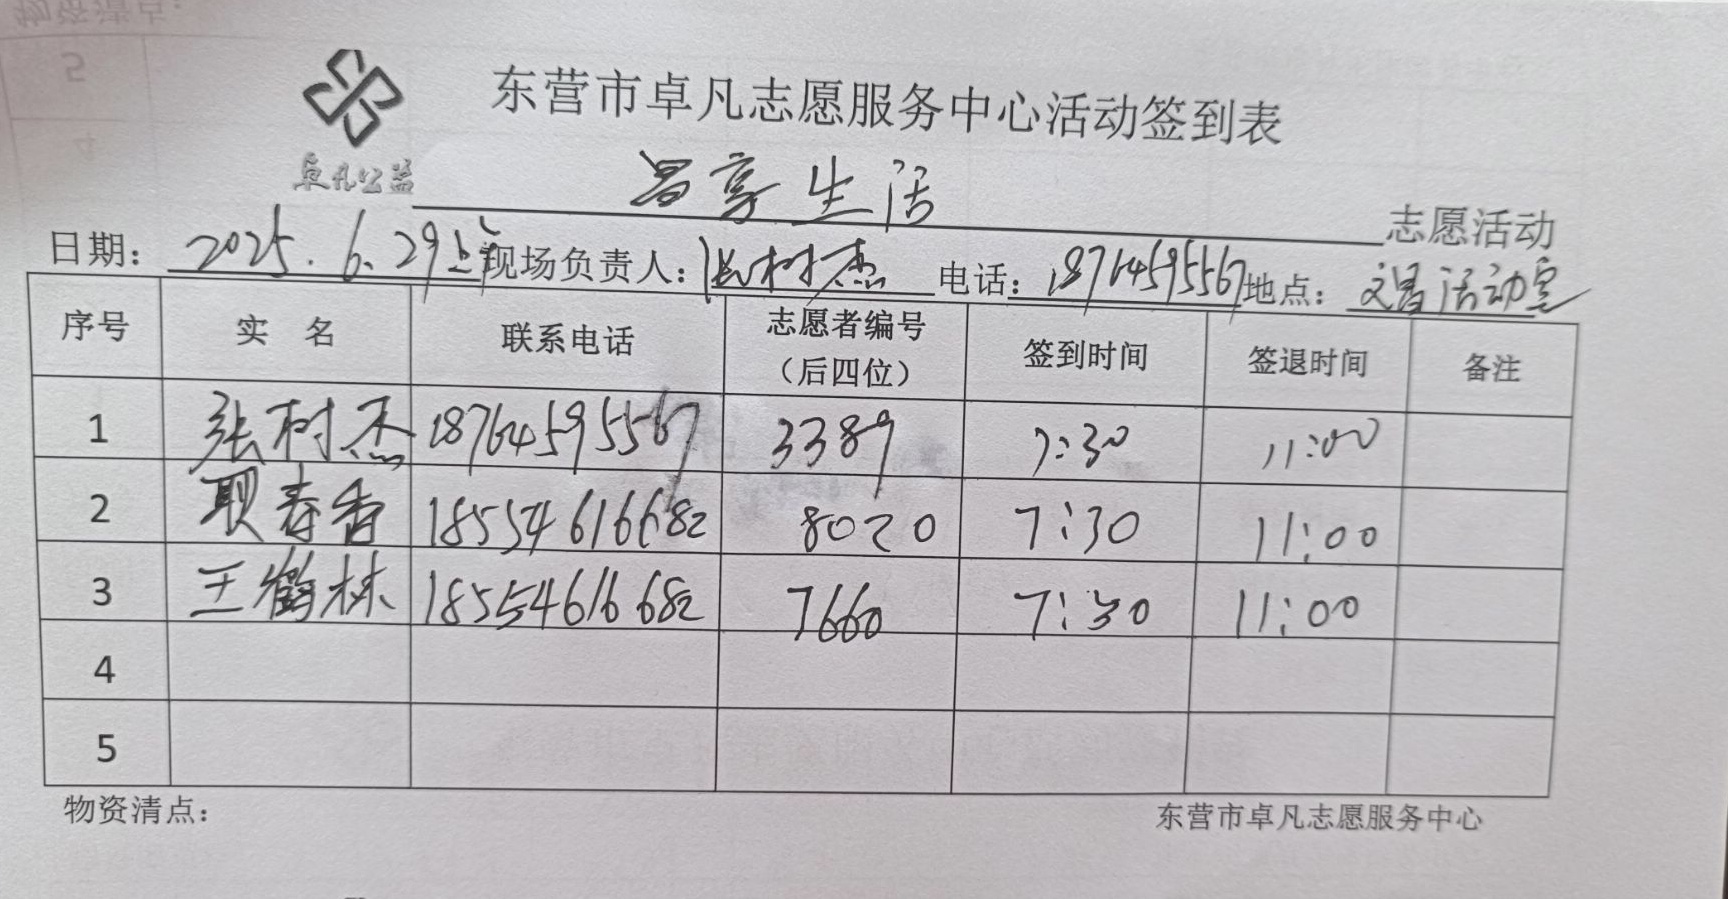 东营市卓凡志愿服务中心活动签到表
卓凡公益
昌享生活 志愿活动
日期：2025.6.29上午 现场负责人：张树杰 电话：18764595567 地点：文昌活动室
序号 实 名 联系电话 志愿者编号（后四位） 签到时间 签退时间 备注
1 张树杰 18764595567 3389 7:30 11:00
2 耿春香 18554616682 8020 7:30 11:00
3 王鹤林 18554616682 7660 7:30 11:00
4
5
物资清点： 东营市卓凡志愿服务中心